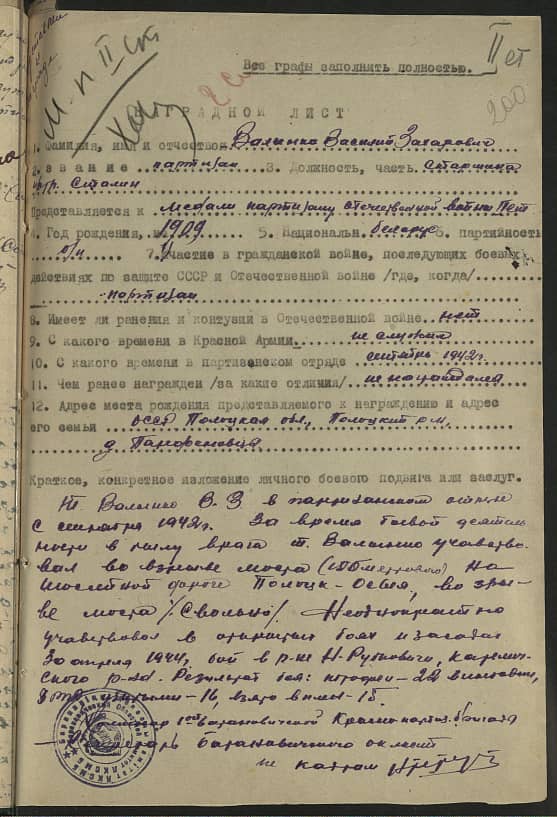 Все графы заполнить полностью.
II ст
200
М П II ст
НАГРАДНОЙ ЛИСТ
1. Фамилия, имя и отчество Валынко Василий Захарович
2. звание партизан 3. Должность, часть старшина
Сталин
Представляется к медали партизану отечественной войны II ст
4. Год рождения 1909 5. Национальн. беларус 6. партийность
б/п 7. Участие в гражданской войне, последующих боевых
действиях по защите СССР и Отечественной войне /где, когда/
партизан
8. Имеет ли ранения и контузии в Отечественной войне нет
9. С какого времени в Красной Армии не служил
10. С какого времени в партизанском отряде сентябрь 1942г.
11. Чем ранее награжден /за какие отличия/ не награждался
12. Адрес места рождения представляемого к награждению и адрес
его семьи БССР Полоцкая обл., Полоцкий р-н,
д.
Краткое, конкретное изложение личного боевого подвига или заслуг.
Т. Валынко В. З в партизанском отряде
с сентября 1942г. За время боевой деятель
ности в тылу врага т. Валынко учавство
вал во взрыве моста на
дороге Полоцк - , во взры-
ве моста /Свольно/. Неоднократно
учавствовал в открытых боях и засадах
30 апреля 1944, бой в р-не Н-Руткович,
ского р-на. Результат боя: трофеи - 22 винтовки,
убитыми - 16, взято в плен - 15.
Барановической партиз. бригады
Секретарь Барановичского